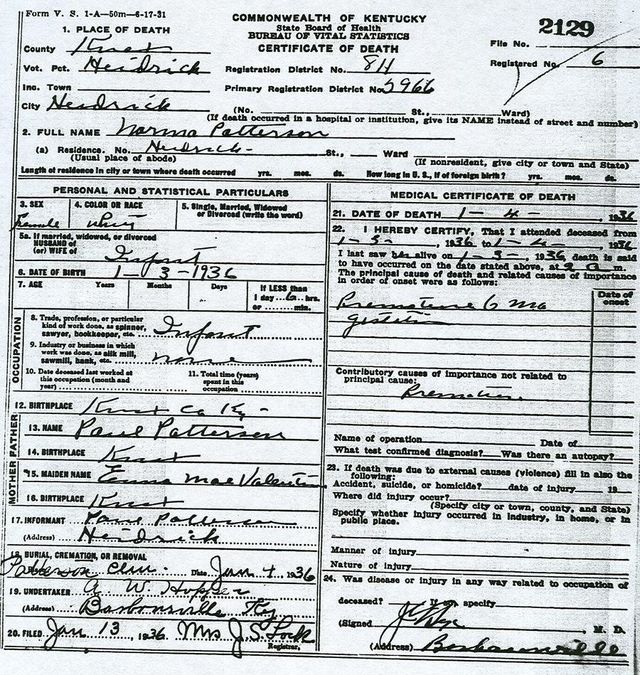 Form V. S. 1-A—50m—6-17-31
COMMONWEALTH OF KENTUCKY
State Board of Health
BUREAU OF VITAL STATISTICS
CERTIFICATE OF DEATH
2129
File No.
Registered No. 6
1. PLACE OF DEATH
County Knox
Vot. Pct. Heidrick
Registration District No. 811
Inc. Town
Primary Registration District No. 5966
City Heidrick (No. St., Ward)
(If death occurred in a hospital or institution, give its NAME instead of street and number)
2. FULL NAME Norma Patterson
(a) Residence. No. Heidrick St., Ward
(Usual place of abode) (If nonresident, give city or town and State)
Length of residence in city or town where death occurred yrs. mos. ds. How long in U. S., if of foreign birth? yrs. mos. ds.
PERSONAL AND STATISTICAL PARTICULARS
3. SEX 4. COLOR OR RACE 5. Single, Married, Widowed
or Divorced (write the word)
Female White
5a. If married, widowed, or divorced
HUSBAND of
(or) WIFE of Infant
6. DATE OF BIRTH 1-3-1936
7. AGE Years Months Days If LESS than
1 day 6 hrs.
or min.
OCCUPATION
8. Trade, profession, or particular
kind of work done, as spinner,
sawyer, bookkeeper, etc. Infant
9. Industry or business in which
work was done, as silk mill,
sawmill, bank, etc. none
10. Date deceased last worked at
this occupation (month and
year)
11. Total time (years)
spent in this
occupation
12. BIRTHPLACE Knox Co Ky
FATHER
13. NAME Paul Patterson
14. BIRTHPLACE Knox
MOTHER
15. MAIDEN NAME Emma Mae Valentine
16. BIRTHPLACE Knox
17. INFORMANT Paul Patterson
(Address) Heidrick
18. BURIAL, CREMATION, OR REMOVAL
Patterson Cem. Date Jan 4, 1936
19. UNDERTAKER A W Hopper
(Address) Barbourville Ky
20. FILED Jan 13, 1936 Mrs J. S. Lock
Registrar.
MEDICAL CERTIFICATE OF DEATH
21. DATE OF DEATH 1-4- 1936
22. I HEREBY CERTIFY, That I attended deceased from
1-3-, 1936 to 1-4-, 1936
I last saw her alive on 1-3-, 1936, death is said
to have occurred on the date stated above, at 2 a m.
The principal cause of death and related causes of importance
in order of onset were as follows:
Date of
onset
Premature 6 mo
gestation
Contributory causes of importance not related to
principal cause:
Name of operation Date of
What test confirmed diagnosis? Was there an autopsy?
23. If death was due to external causes (violence) fill in also the
following:
Accident, suicide, or homicide? date of injury 19
Where did injury occur?
(Specify city or town, county, and State)
Specify whether injury occurred in industry, in home, or in
public place.
Manner of injury
Nature of injury
24. Was disease or injury in any way related to occupation of
deceased? If so, specify
(Signed) M. D.
(Address) Barbourville